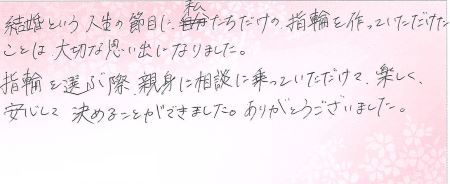 結婚という人生の節目に、私たちだけの指輪を作っていただけた
ことは大切な思い出になりました。
指輪を選ぶ際、親身に相談に乗っていただけて、楽しく、
安心して決めることができました。ありがとうございました。